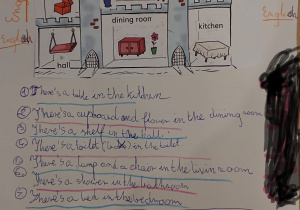 English
English
dining room
kitchen
hall
① There's a table in the kitchen
② There's a cupboard and flower in the dining room
③ There's a shelf in the hall.
④ There's a toilet in the
⑤ There's a lamp and a chair in the livin room
⑥ There's a shower in the bathroom
⑦ There's a bed in the bedroom